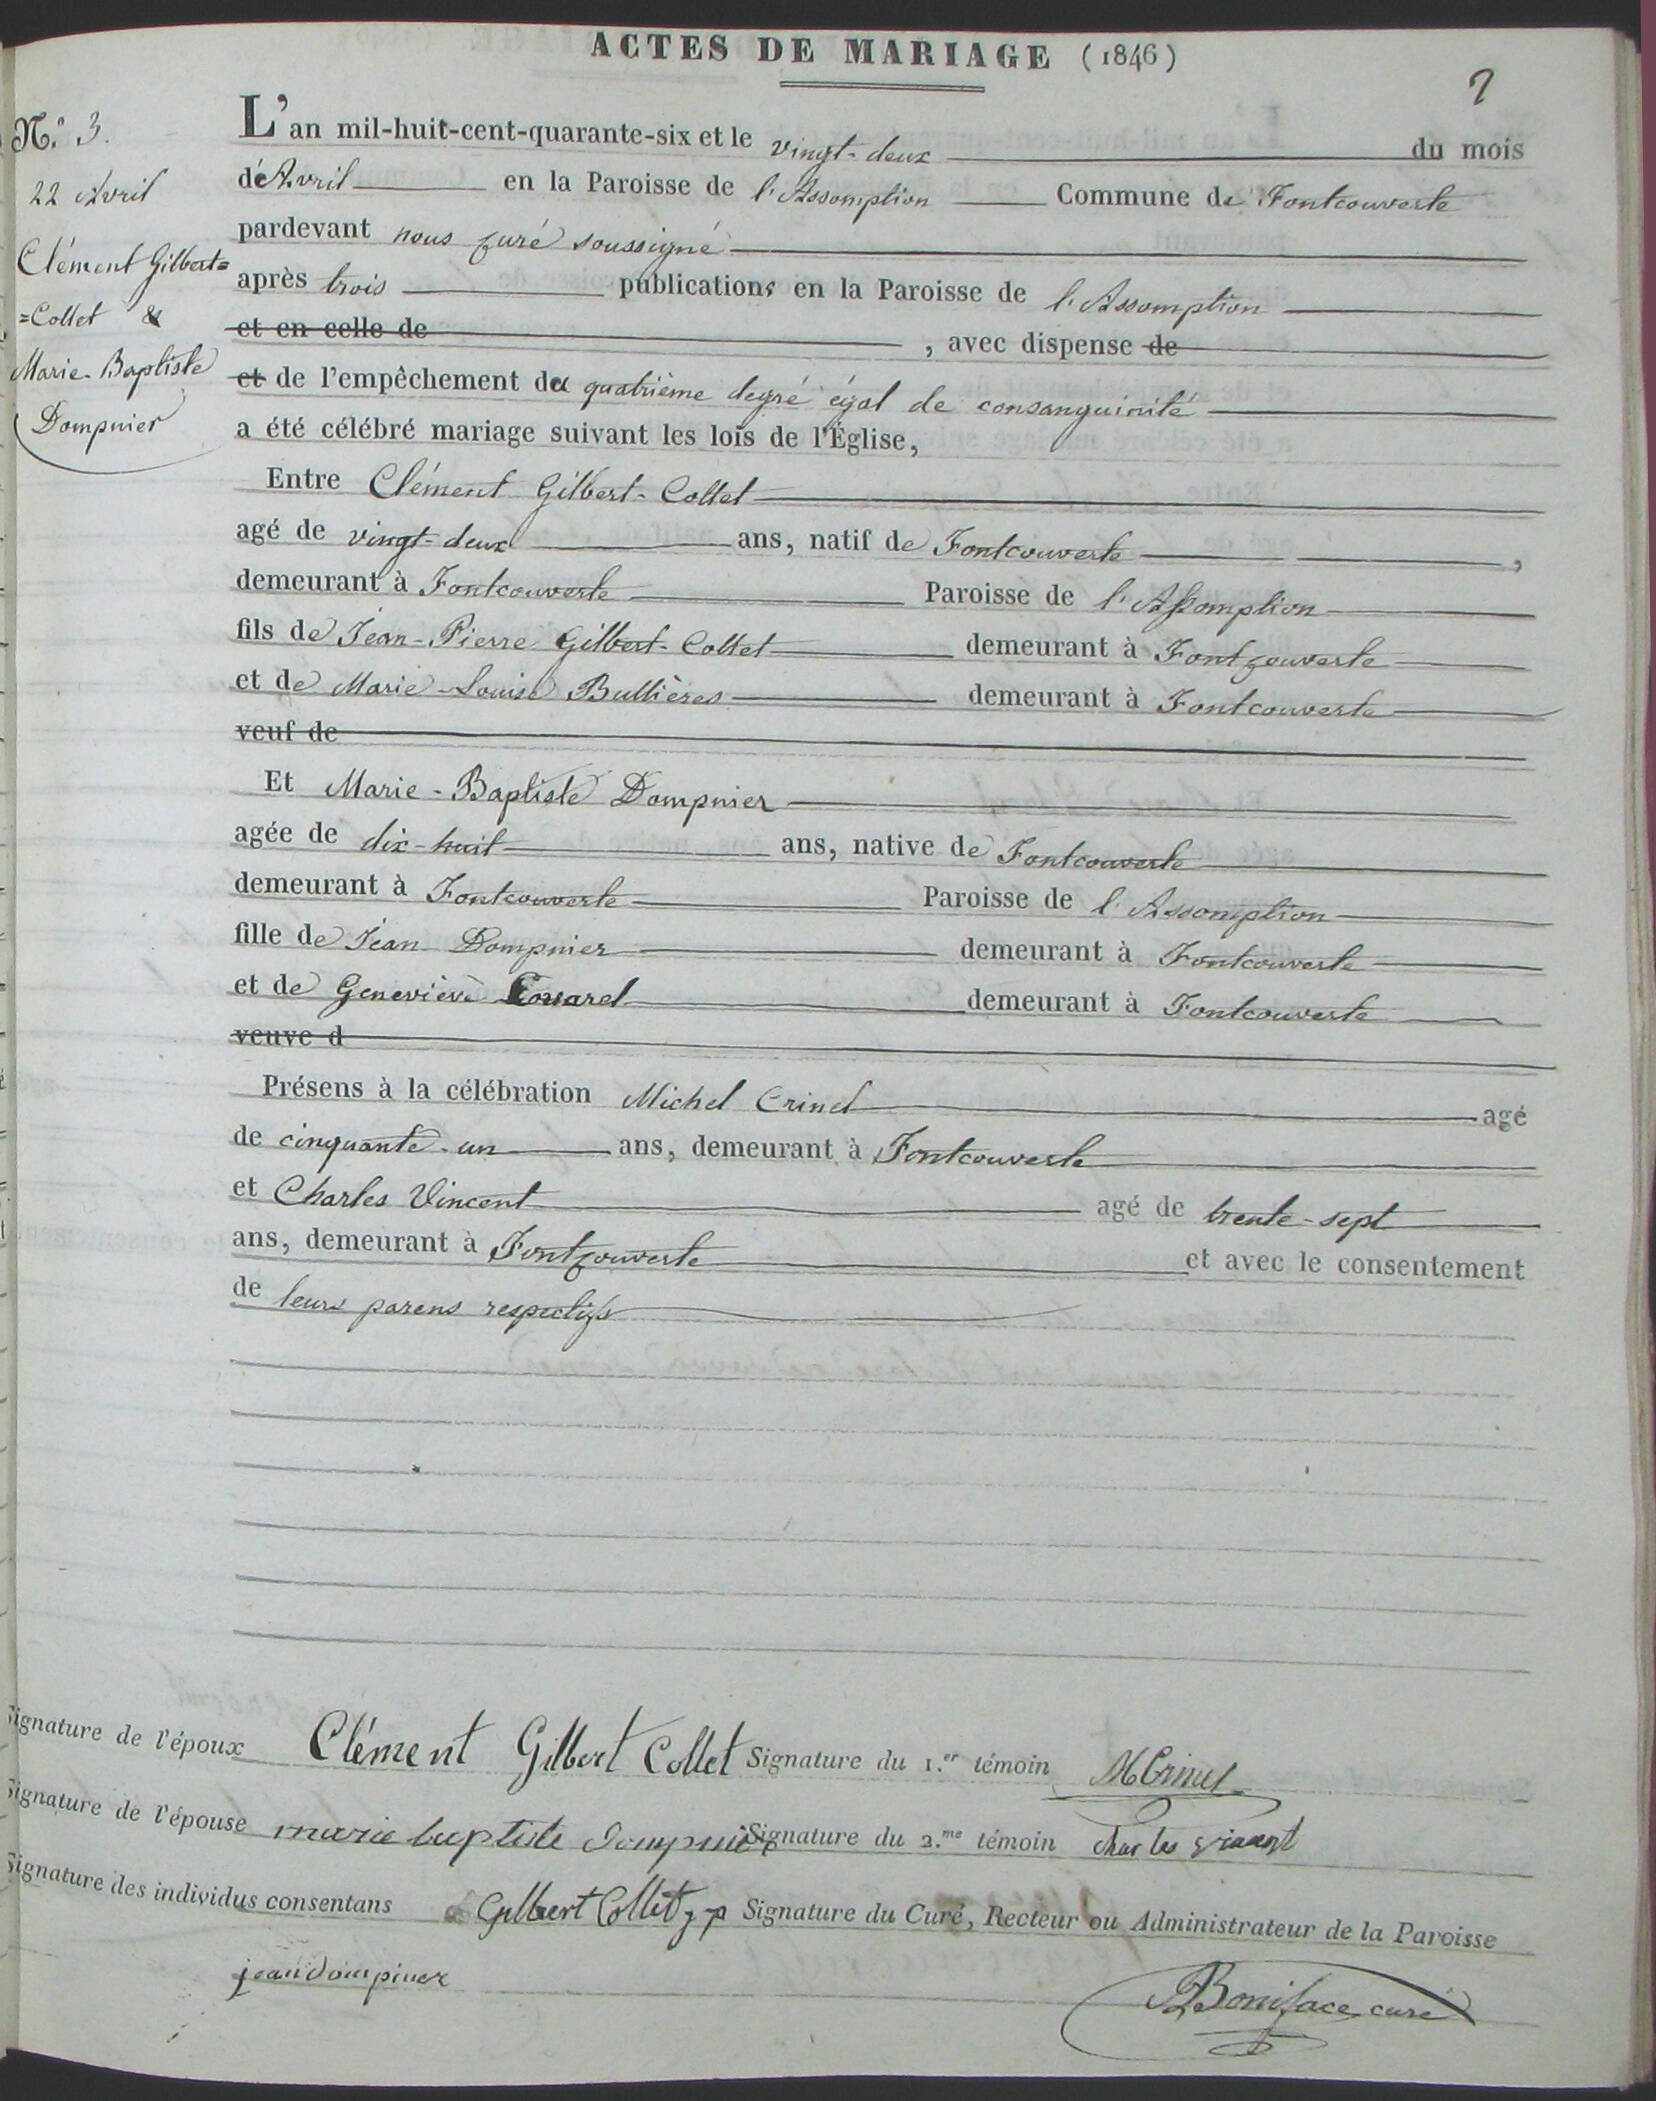 ACTES DE MARIAGE (1846)
2
N.° 3.
22 Avril
Clément Gilbert=
=Collet &
Marie-Baptiste
Dompnier
L'an mil-huit-cent-quarante-six et le vingt-deux du mois
d'Avril en la Paroisse de l'Assomption Commune de Fontcouverte
pardevant nous curé soussigné
après trois publications en la Paroisse de l'Assomption
et en celle de , avec dispense de
et de l'empêchement du quatrième degré égal de consanguinité
a été célébré mariage suivant les lois de l'Église,
Entre Clément Gilbert-Collet
agé de vingt-deux ans, natif de Fontcouverte ,
demeurant à Fontcouverte Paroisse de l'Assomption
fils de Jean-Pierre Gilbert-Collet demeurant à Fontcouverte
et de Marie-Louise Bullières demeurant à Fontcouverte
veuf de
Et Marie-Baptiste Dompnier
agée de dix-huit ans, native de Fontcouverte
demeurant à Fontcouverte Paroisse de l'Assomption
fille de Jean Dompnier demeurant à Fontcouverte
et de Geneviève demeurant à Fontcouverte
veuve d
Présens à la célébration Michel Crinel agé
de cinquante-un ans, demeurant à Fontcouverte
et Charles Vincent agé de trente-sept
ans, demeurant à Fontcouverte et avec le consentement
de leurs parens respectifs
Signature de l'époux Clément Gilbert Collet Signature du 1.er témoin MCrinel
Signature de l'épouse marie baptiste dompnier Signature du 2.me témoin charles vincent
Signature des individus consentans Gilbert Collet j p Signature du Curé, Recteur ou Administrateur de la Paroisse
jean dompnier
Boniface curé